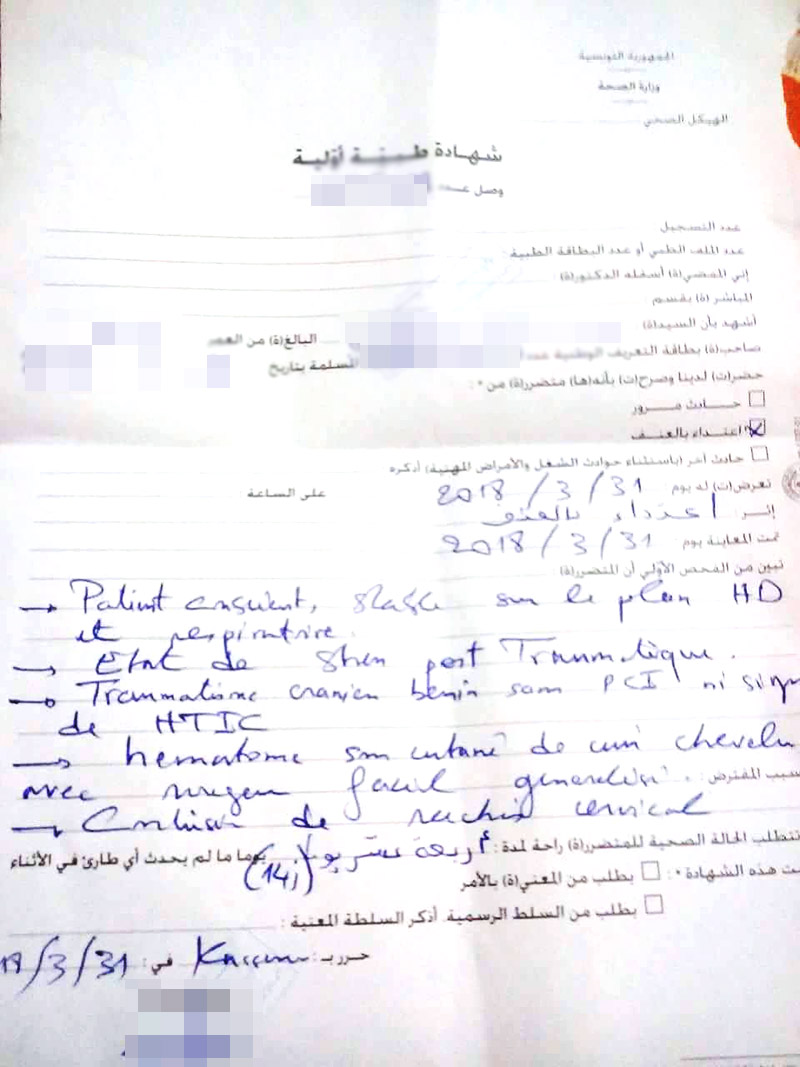 الجمهورية التونسية
وزارة الصحة
الهيكل الصحي
شهادة طبية أولية
وصل عدد
عدد التسجيل
عدد الملف الطبي أو عدد البطاقة الطبية :
إني الممضي(ة) أسفله الدكتور(ة)
المباشر (ة) بقسم
أشهد بأن السيد(ة)
البالغ(ة) من العمر
صاحب(ة) بطاقة التعريف الوطنية عدد
المسلمة بتاريخ
حضر(ت) لدينا وصرح(ت) بأنه(ها) متضرر(ة) من * :
حادث مرور
اعتداء بالعنف
حادث آخر (باستثناء حوادث الشغل والأمراض المهنية) أذكره
تعرض(ت) له يوم 2018 / 3 / 31 على الساعة
إثر اعتداء بالعنف
تمت المعاينة يوم 2018 / 3 / 31
تبين من الفحص الأولي أن المتضرر(ة)
→ Patient conscient, stable sur le plan HD
et respiratoire.
→ Etat de stress post Traumatique.
→ Traumatisme cranien benin sans PCI ni sign
de HTIC
→ hematome sous cutané de cuir chevelu
avec facial
سبب المفترض :
→ Contusion de rachis cervical
تتطلب الحالة الصحية للمتضرر(ة) راحة لمدة : أربعة عشر يوما (14) يوما ما لم يحدث أي طارئ في الأثناء
ت هذه الشهادة * : بطلب من المعني(ة) بالأمر
بطلب من السلط الرسمية. أذكر السلطة المعنية :
حرر بـ : في : 18/3/31